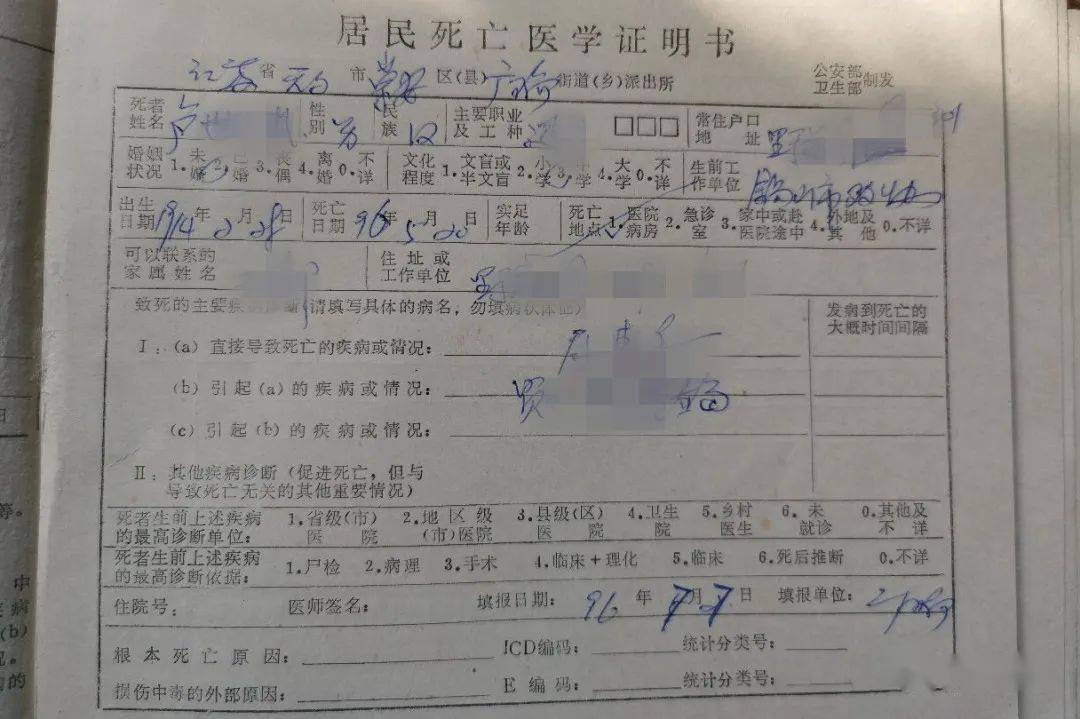 居民死亡医学证明书
江苏省 无 市 区(县) 街道(乡)派出所 公安部 卫生部 制发
死者姓名 卢 性别 男 民族 汉 主要职业及工种 □□□ 常住户口地址
婚姻状况 1.未婚 2.已婚 3.丧偶 4.离婚 0.不详 文化程度 1.文盲或半文盲 2.小学 3.中学 4.大学 0.不详 生前工作单位
出生日期 1914年2月28日 死亡日期 96年5月20日 实足年龄 死亡地点 1.医院病房 2.急诊室 3.家中或赴医院途中 4.外地及其他 0.不详
可以联系的家属姓名 住址或工作单位
致死的主要疾病诊断(请填写具体的病名,勿填病状体征) 发病到死亡的大概时间间隔
Ⅰ:(a)直接导致死亡的疾病或情况:
(b)引起(a)的疾病或情况:
(c)引起(b)的疾病或情况:
Ⅱ:其他疾病诊断(促进死亡,但与
导致死亡无关的其他重要情况)
死者生前上述疾病的最高诊断单位: 1.省级(市)医院 2.地区级(市)医院 3.县级(区)医院 4.卫生院 5.乡村医生 6.未就诊 0.其他及不详
死者生前上述疾病的最高诊断依据: 1.尸检 2.病理 3.手术 4.临床+理化 5.临床 6.死后推断 0.不详
住院号: 医师签名: 填报日期: 96年7月7日 填报单位:
根本死亡原因: ICD编码: 统计分类号:
损伤中毒的外部原因: E编码: 统计分类号:
等。
日
中
疾病
(b)
况。
的